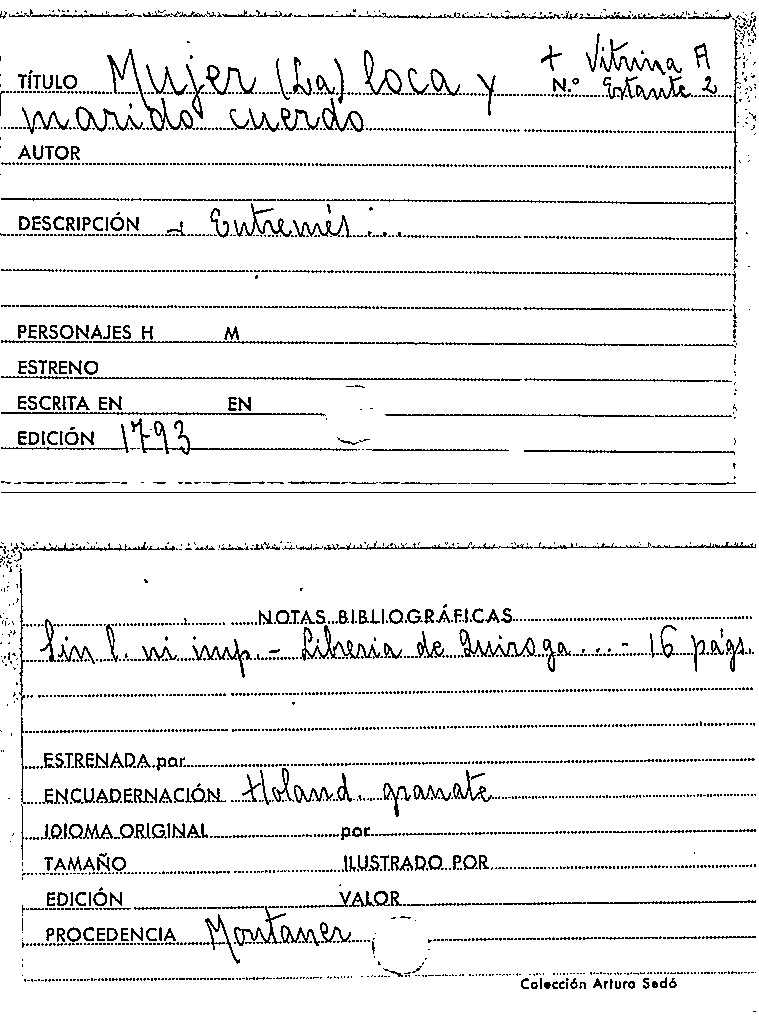 + Vitrina A
TÍTULO Mujer (La) loca y N.º Estante 2
marido cuerdo
AUTOR
DESCRIPCIÓN - Entremés...
PERSONAJES H M
ESTRENO
ESCRITA EN EN
EDICIÓN 1793
NOTAS BIBLIOGRÁFICAS
Sin l. ni imp. - Libreria de Quiroga ... - 16 págs.
ESTRENADA por
ENCUADERNACIÓN Holand. granate
IDIOMA ORIGINAL por
TAMAÑO ILUSTRADO POR
EDICIÓN VALOR
PROCEDENCIA Montaner
Colección Arturo Sedó